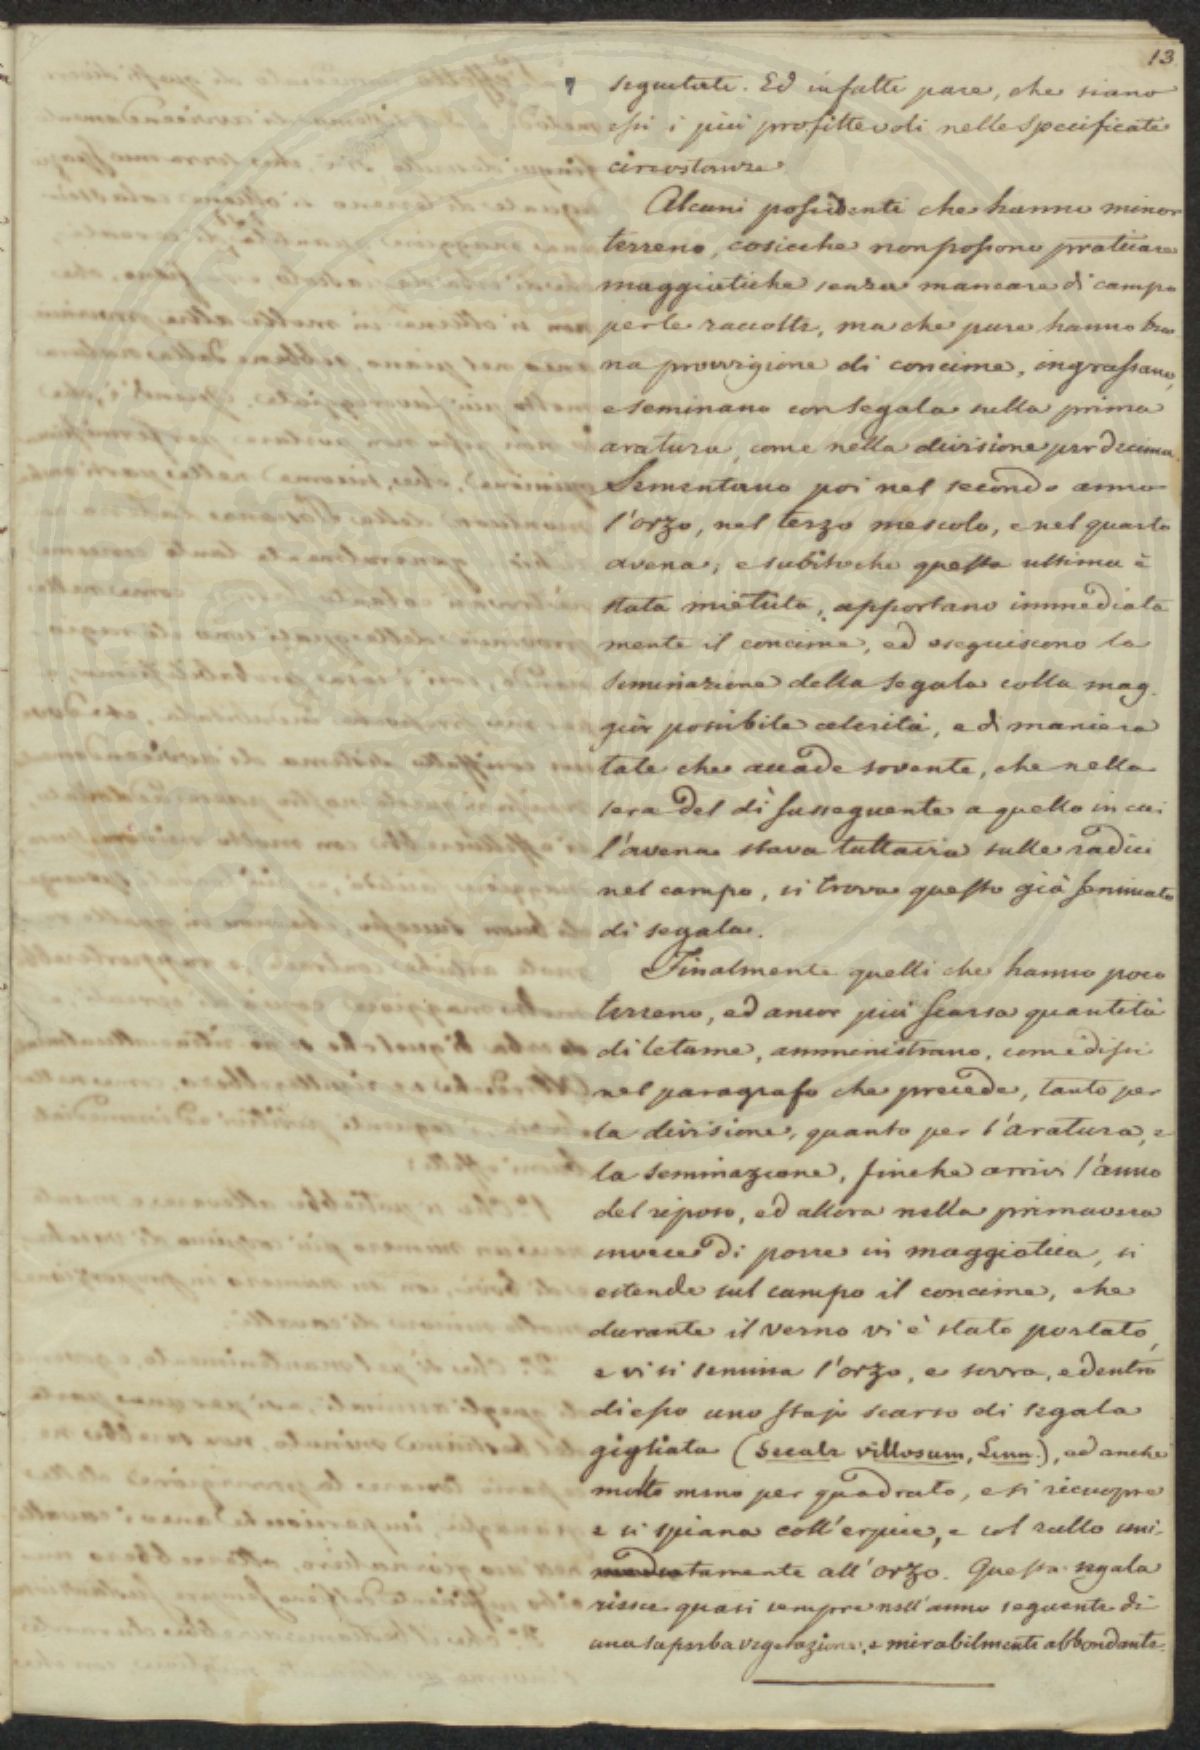 13
seguitate. Ed infatti pare, che siano
essi i più profittevoli nelle specificate
circostanze.
Alcuni possidenti che hanno minor
terreno, cosicche non possono praticare
maggiatiche senza mancare di campo
per le raccolte, ma che pure hanno buo
na provvigione di concime, ingrassano,
e seminano con segala nella prima
aratura, come nella divisione per decima.
Sementano poi nel secondo anno
l'orzo, nel terzo mescolo, e nel quarto
avena; e subito che questa ultima è
stata mietuta, apportano immediata
mente il concime, ed eseguiscono la
seminazione della segala colla mag-
gior possibile celerità, e di maniera
tale che accade sovente, che nella
sera del dì susseguente a quello in cui
l'avena stava tuttavia sulle radici
nel campo, si trova questo già seminato
di segala.
Finalmente quelli che hanno poco
terreno, ed ancor più scarsa quantità
di letame, amministrano, come dissi
nel paragrafo che precede, tanto per
la divisione, quanto per l'aratura, e
la seminazione, finche arrivi l'anno
del riposo, ed allora nella primavera
invece di porre in maggiatica, si
estende sul campo il concime, che
durante il verno vi è stato portato,
e vi si semina l'orzo, e sovra, e dentro
di esso uno stajo scarso di segala
gigliata (Secale villosum, Linn.), ed anche
molto meno per quadrato, e si ricuopre
e si spiana coll'erpice, e col rullo uni-
tamente all'orzo. Questa segala
riesce quasi sempre nell'anno seguente di
una superba vegetazione, e mirabilmente abbondante.